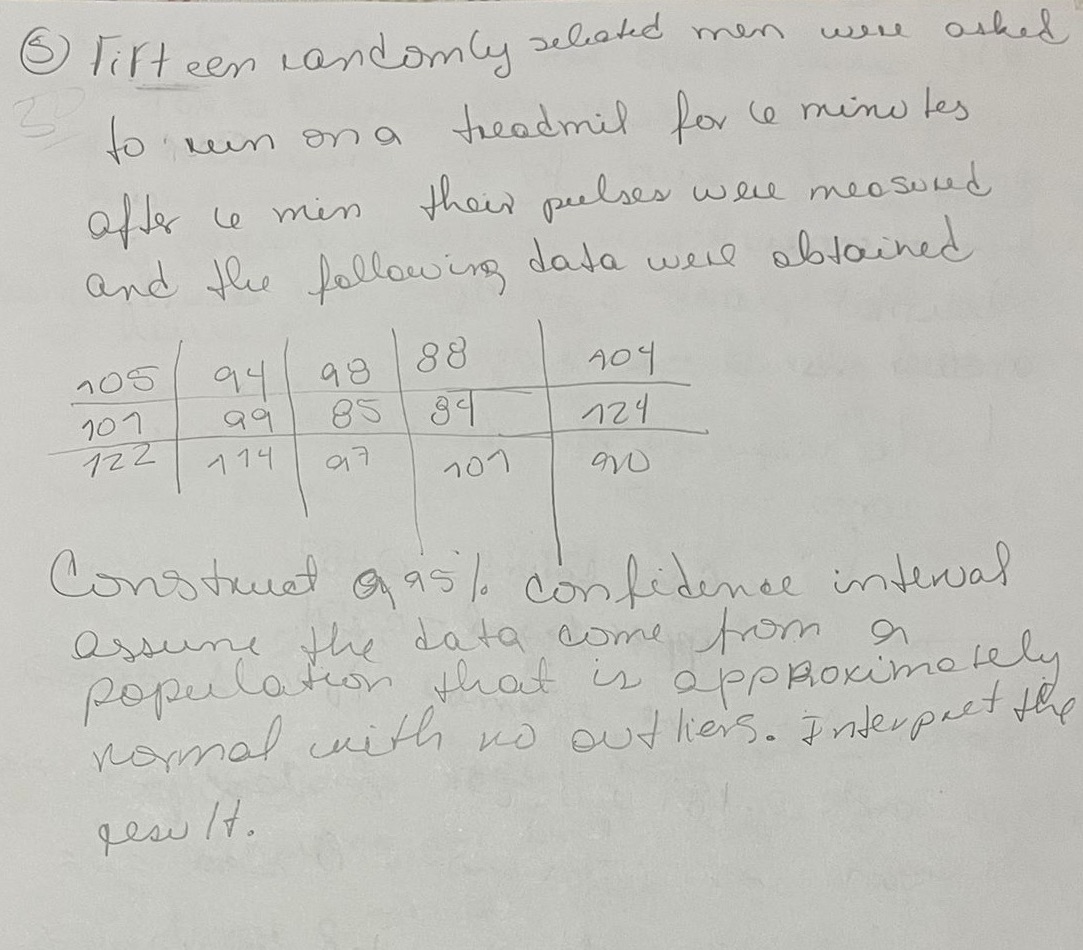 ⑤ Fifteen randomly selected men were asked
to run on a treadmil for 6 minutes
after 6 min their pulses were measured
and the following data were obtained
105 94 98 88 104
101 99 85 84 124
122 114 97 101 90
Construct a 95% confidence interval
assume the data come from a
population that is approximately
normal with no outliers. Interpret the
result.